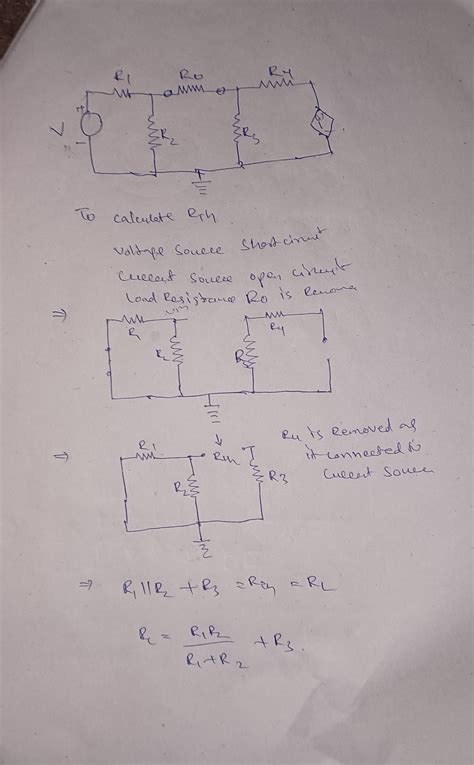 R1 R0 R4
V + -
R2 R3
To calculate Rth
Voltage Source Shortcircuit
Current Source open circuit
Load Resistance R0 is
⇒ R1 R4
R2 R3
⇒ R1 Rth R4 is Removed as
R2 R3 it connected to
Current Source
⇒ R1||R2 + R3 = Rth = RL
RL = R1R2 / R1+R2 + R3.